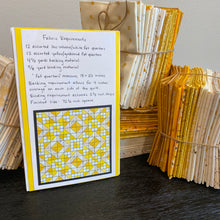 Fabric Requirements
12 assorted low volume/white fat quarters
13 assorted yellow/mustard fat quarters
4¾ yards backing material
5/8 yard binding material
*fat quarters measure 18 x 22 inches
Backing requirement allows for 4 inches
overhang on each side of the quilt
Binding requirement assumes 2½ inch strips
Finished size: 72½ inch square